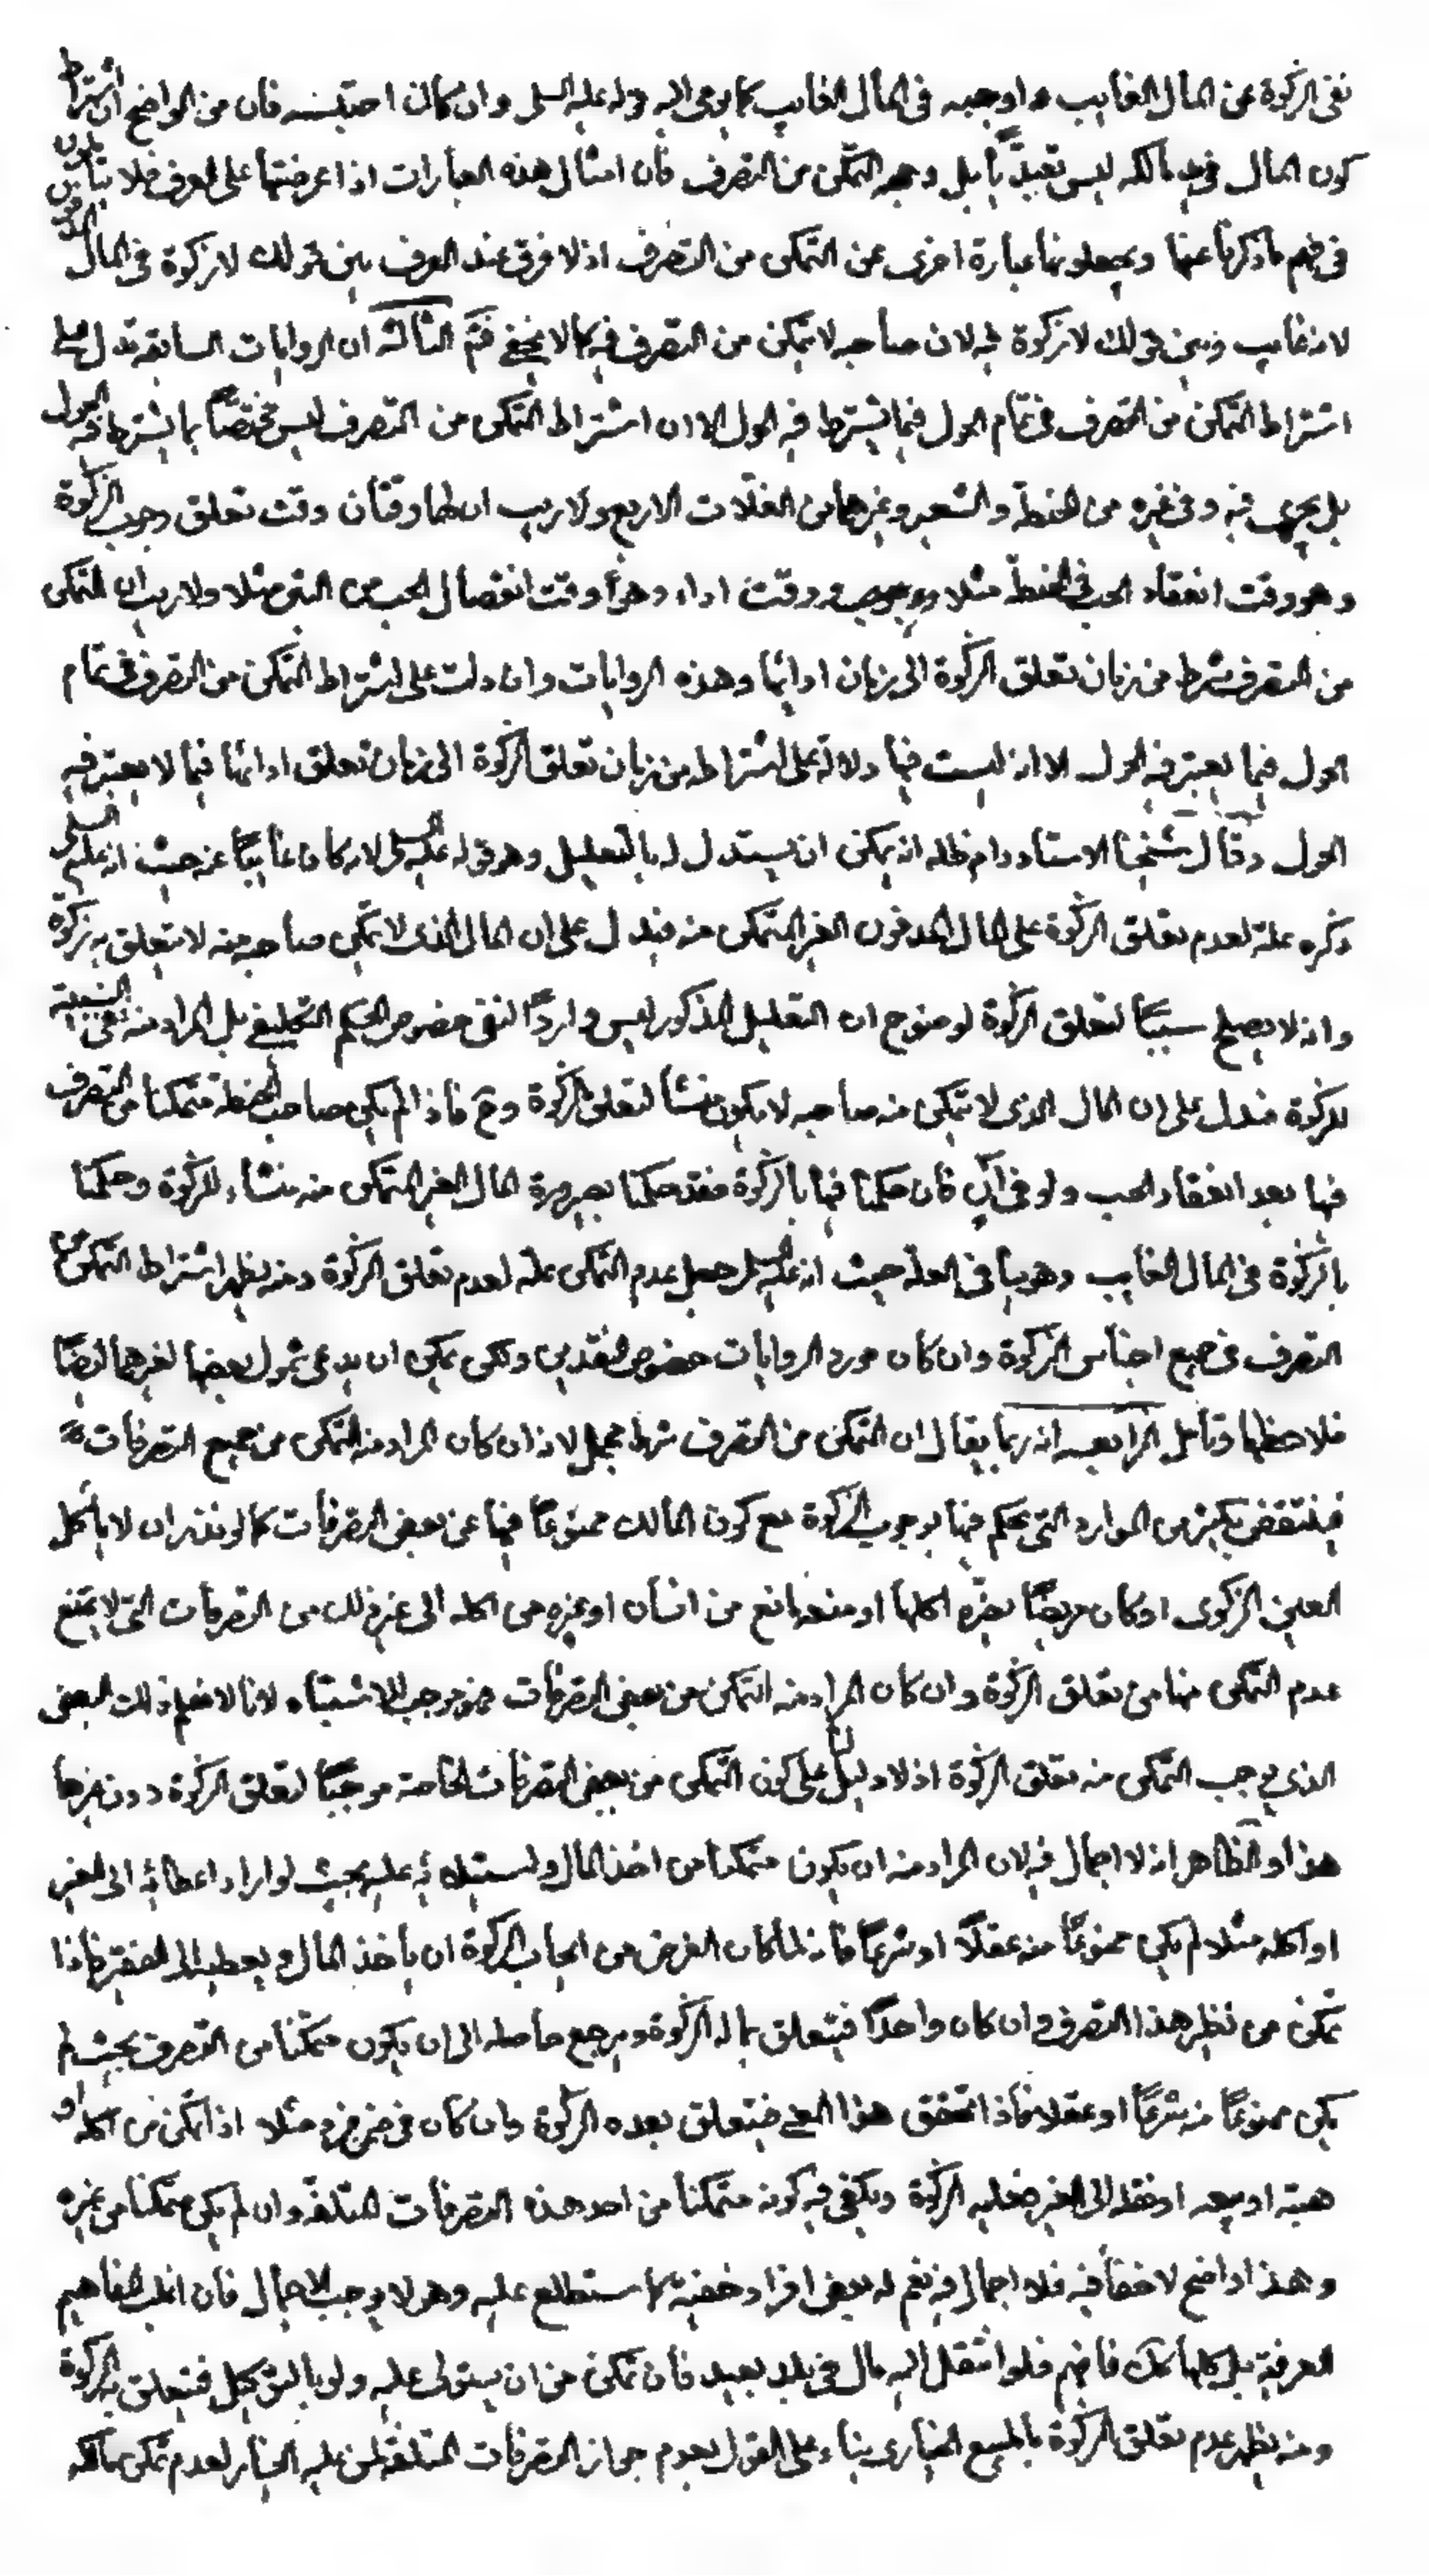 نفى الزكوة عن المال الغايب و اوجبه فى المال الغايب كما يومى اليه قوله عليه السلم وان كان احتبسه فان من الواضح ان اشتراط
كون المال فى يد مالكه ليس تعبديّاً بل وجهه التمكن من التصرف فان امثال هذه العبارات اذا عرضتها على العرف فلا يتأملون
فى فهم ما ذكرنا عنها ويجعلونها عبارة اخرى عن التمكن من التصرف اذ لا فرق عند العرف بين قولك لا زكوة فى المال
لانه غايب وبين قولك لا زكوة فيه لان صاحبه لا يتمكن من التصرف فيه كما لا يخفى فتمّ الثالثه ان الروايات السابقه تدل على
اشتراط التمكن من التصرف فى تمام الحول فيما يشترط فيه الحول الا ان اشتراط التمكن من التصرف ليس مختصّاً بما يشترط فيه الحول
بل يجرى فيه وفى غيره من الحنطة والشعير وغيرهما من الغلّات الاربع ولا ريب ان لها وقتان وقت تعلق وجوب الزكوة
وهو وقت انعقاد الحب فى الحنطة مثلا ووقت اداء وهو وقت انفصال الحب من التبن مثلا ولا ريب ان التمكن
من التصرف شرط من زمان تعلق الزكوة الى زمان ادائها وهذه الروايات وان دلت على اشتراط التمكن من التصرف فى تمام
الحول فيما يعتبر فيه الحول الا انه ليست فيها دلالة على اشتراطه من زمان تعلق الزكوة الى زمان تعلق ادائها فيما لا يعتبر فيه
الحول وقال شيخنا الاستاد دام ظله انه يمكن ان يستدل له بالتعليل وهو قوله عليه السلم لانه كان غايباً عنه حيث انه عليه السلم
ذكره علة لعدم تعلق الزكوة على المال المدفون الغير المتمكن منه فيدل على ان المال الذى لا يتمكن صاحبه منه لا يتعلق به زكوة
وانه لا يصلح سبباً لتعلق الزكوة لوضوح ان التعليل المذكور ليس وارداً لنفى خصوص الحكم التكليفى بل المراد منه نفى السببية
للزكوة فيدل على ان المال الذى لا يتمكن منه صاحبه لا يكون منشأ لتعلق الزكوة وح فاذا لم يكن صاحب الحنطة متمكنا من التصرف
فيها بعد انعقاد الحب ولو فى آن فان حكمنا فيها بالزكوة فقد حكمنا بصيرورة المال الغير المتمكن منه منشاء للزكوة وحكمنا
بالزكوة فى المال الغايب وهو ينافى العلة حيث انه عليه السلم جعل عدم التمكن علة لعدم تعلق الزكوة ومنه يظهر اشتراط التمكن من
التصرف فى جميع اجناس الزكوة وان كان مورد الروايات خصوص النقدين ولكن يمكن ان يدعى شمول بعضها لغيرهما ايضاً
فلاحظها وتأمل الرابعه انه ربما يقال ان التمكن من التصرف شرط مجمل لانه ان كان المراد منه التمكن من جميع التصرفات
فينتقض بكثير من الموارد التى يحكم فيها بوجوب الزكوة مع كون المالك ممنوعاً فيها عن بعض التصرفات كما لو نذر ان لا ياكل
العين الزكوى او كان مريضاً يضرّه اكلها او منعه مانع من انسان او غيره من اكله الى غير ذلك من التصرفات التى لا يمنع
عدم التمكن منها من تعلق الزكوة وان كان المراد منه التمكن من بعض التصرفات فهو موجب للاشتباه لانا لا نعلم ذلك البعض
الذى يوجب التمكن منه تعلق الزكوة اذ لا دليل لنا على كون التمكن من بعض التصرفات الخاصة موجباً لتعلق الزكوة دون غيرها
هذا والظاهر انه لا اجمال فيه لان المراد منه ان يكون متمكنا من اخذ المال واستيلائه عليه بحيث لو اراد اعطائه الى الغير
او اكله مثلا لم يكن ممنوعاً منه عقلاً او شرعاً فانه لما كان الغرض من ايجاب الزكوة ان ياخذ المال ويعطيه الى الفقير فاذا
تمكن من نظير هذا التصرف وان كان واحداً فيتعلق بماله الزكوة ويرجع حاصله الى ان يكون متمكناً من التصرف بحيث لم
يكن ممنوعاً منه شرعاً او عقلا فاذا تحقق هذا المعنى فيتعلق بعده الزكوة وان كان فى ضمن فرد مثلا اذا تمكن من اكله او
هبته او بيعه او نقله الى الغير فعليه الزكوة ويكفى فيه كونه متمكنا من احد هذه التصرفات المتلفة وان لم يكن متمكنا من غيره
وهذا واضح لا خفاء فيه فلا اجمال فيه نعم له بعض افراد خفية كما ستطلع عليه وهو لا يوجب الاجمال فان اغلب المفاهيم
العرفية بل كلها كك فافهم فلو انتقل اليه مال فى بلد بعيد فان تمكن من ان يستولى عليه ولو بالتوكيل فيتعلق به الزكوة
ومنه يظهر عدم تعلق الزكوة بالمبيع الخيارى بناء على القول بعدم جواز التصرفات المتلفة لمن عليه الخيار لعدم تمكن مالكه